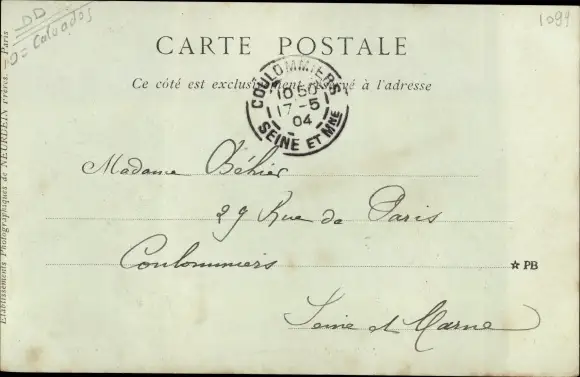 DD
Calvados
1091
CARTE POSTALE
Ce côté est exclusivement réservé à l'adresse
COULOMMIERS
10 50
17-5
04
SEINE ET MNE
Madame Béhier
29 Rue de Paris
Coulommiers
☆ PB
Seine et Marne
Etablissements Photographiques de NEURDEIN frères. — Paris